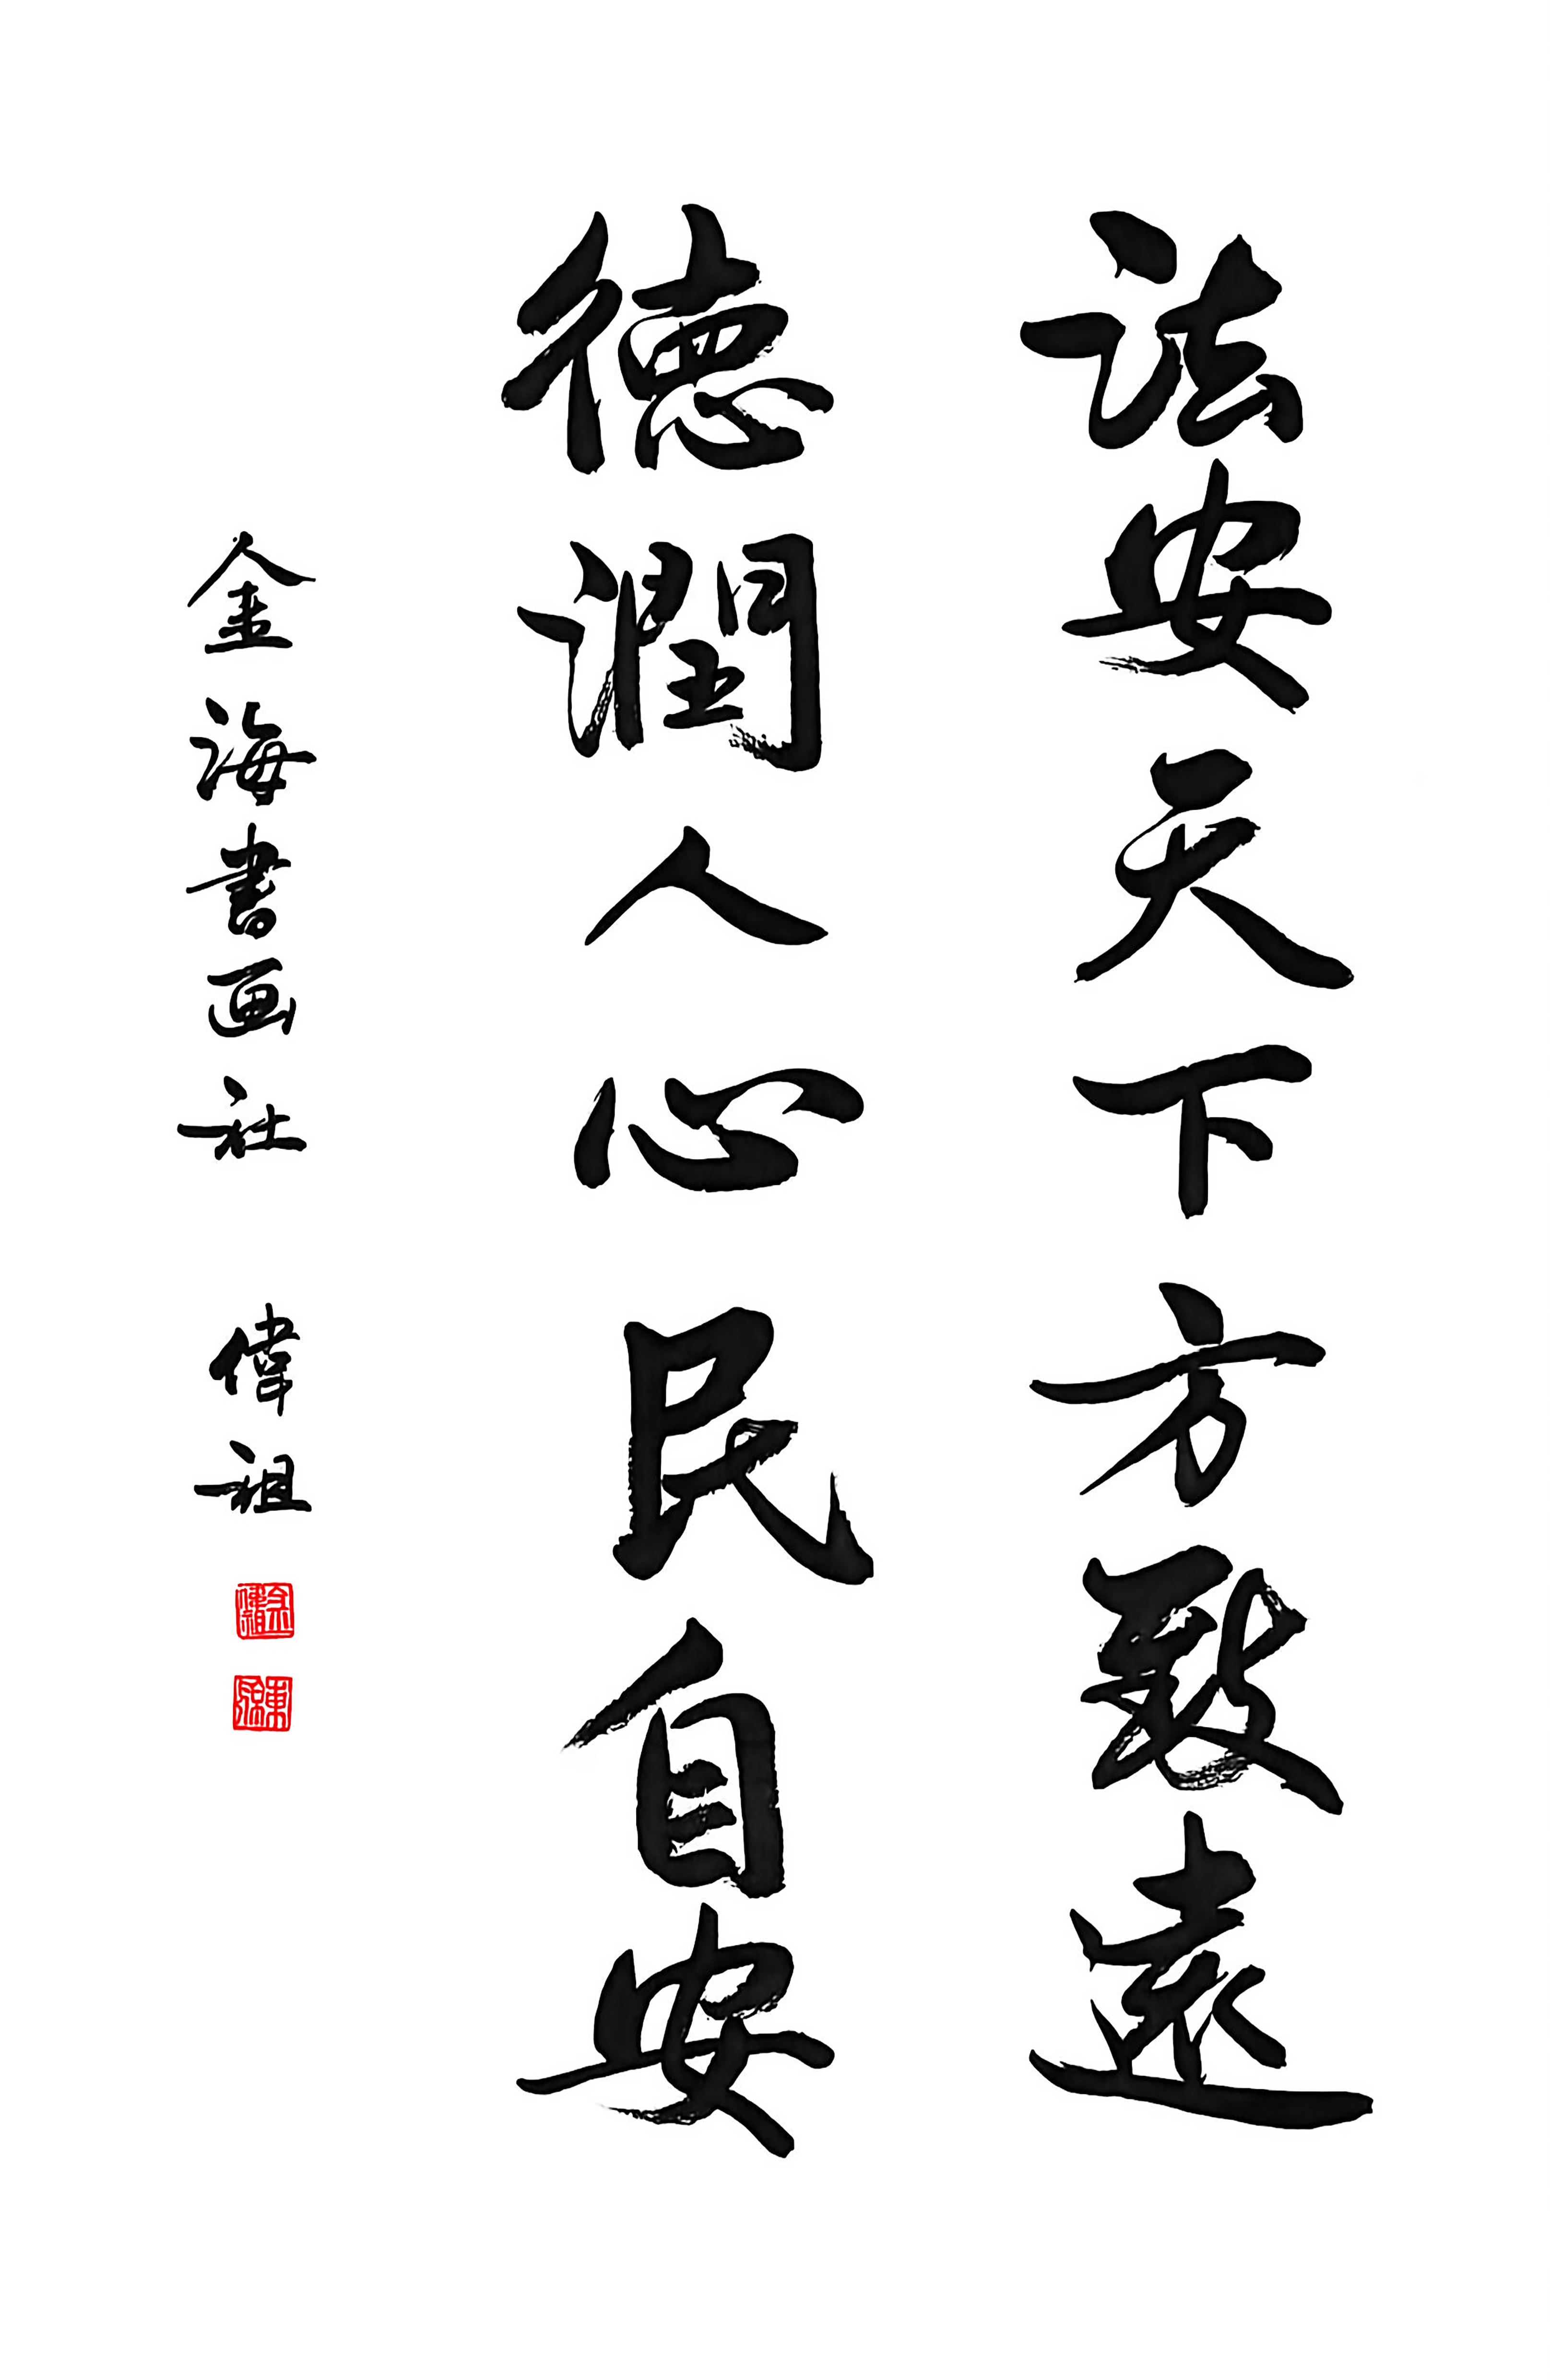 法安天下方致遠
德潤人心民自安
金海書画社 偉祖